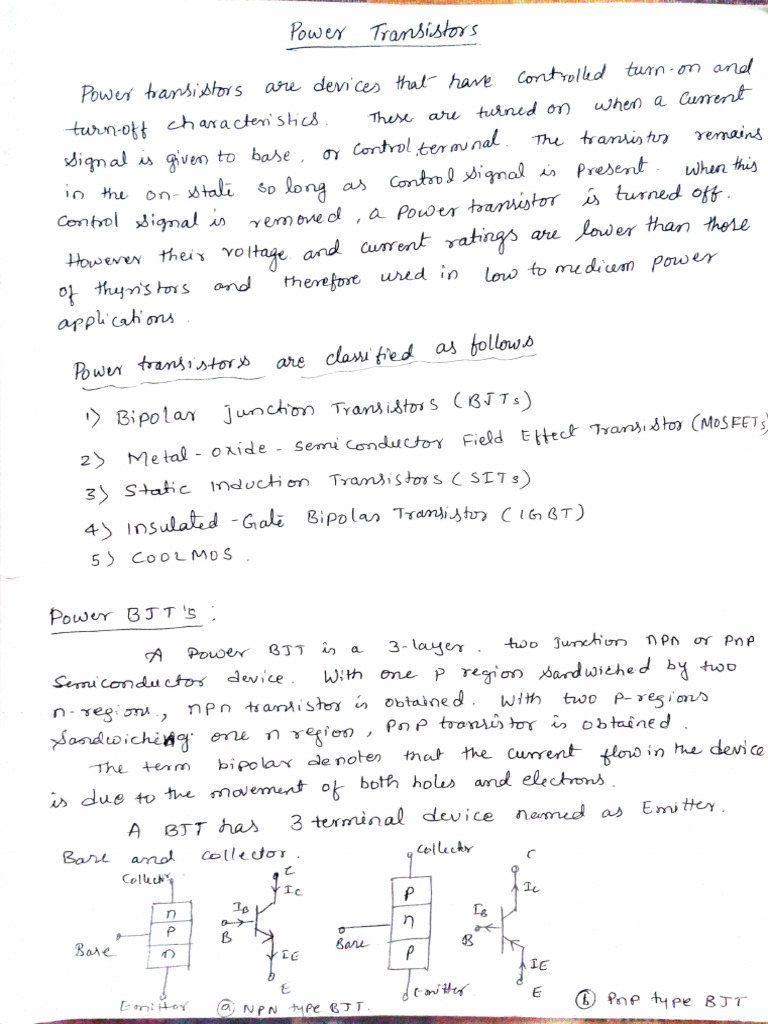 Power Transistors
Power transistors are devices that have controlled turn-on and
turn-off characteristics. These are turned on when a current
signal is given to base, or control terminal. The transistor remains
in the on-state so long as control signal is present. When this
control signal is removed, a power transistor is turned off.
However their voltage and current ratings are lower than those
of thyristors and therefore used in low to medium power
applications.
Power transistors are classified as follows
1) Bipolar junction Transistors (BJTs)
2) Metal-oxide-semiconductor Field Effect Transistor (MOSFETs)
3) Static Induction Transistors (SITs)
4) Insulated-Gate Bipolar Transistor (IGBT)
5) COOLMOS.
Power BJT's :
A Power BJT is a 3-layer, two Junction npn or pnp
Semiconductor device. With one p region sandwiched by two
n-regions, npn transistor is obtained. With two p-regions
sandwiching one n region, pnp transistor is obtained.
The term bipolar denotes that the current flow in the device
is due to the movement of both holes and electrons.
A BJT has 3 terminal device named as Emitter.
Base and collector.
Collector
n
P
n
Base
Emitter
C
IC
IB
B
IE
E
(a) NPN type BJT.
Collector
P
n
P
Base
Emitter
C
IC
IB
B
IE
E
(b) PnP type BJT